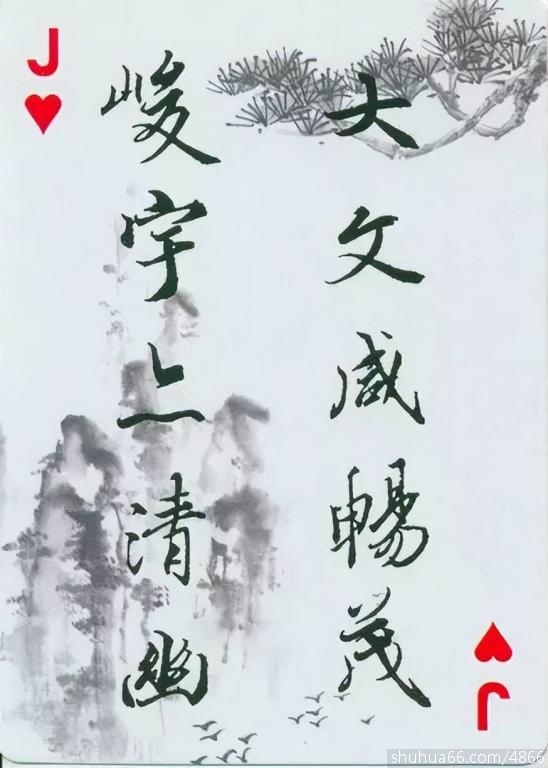 J
大文咸暢茂
峻宇亦清幽
J
shuhua66.com/4866